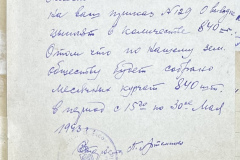 на ваш приказ №129 о выводе
цыплят в количестве 840 шт.
О том что по нашему зем.
обществу будет собрано
месячных курчат 840 шт.
в период с 15го по 30ое Мая
1943